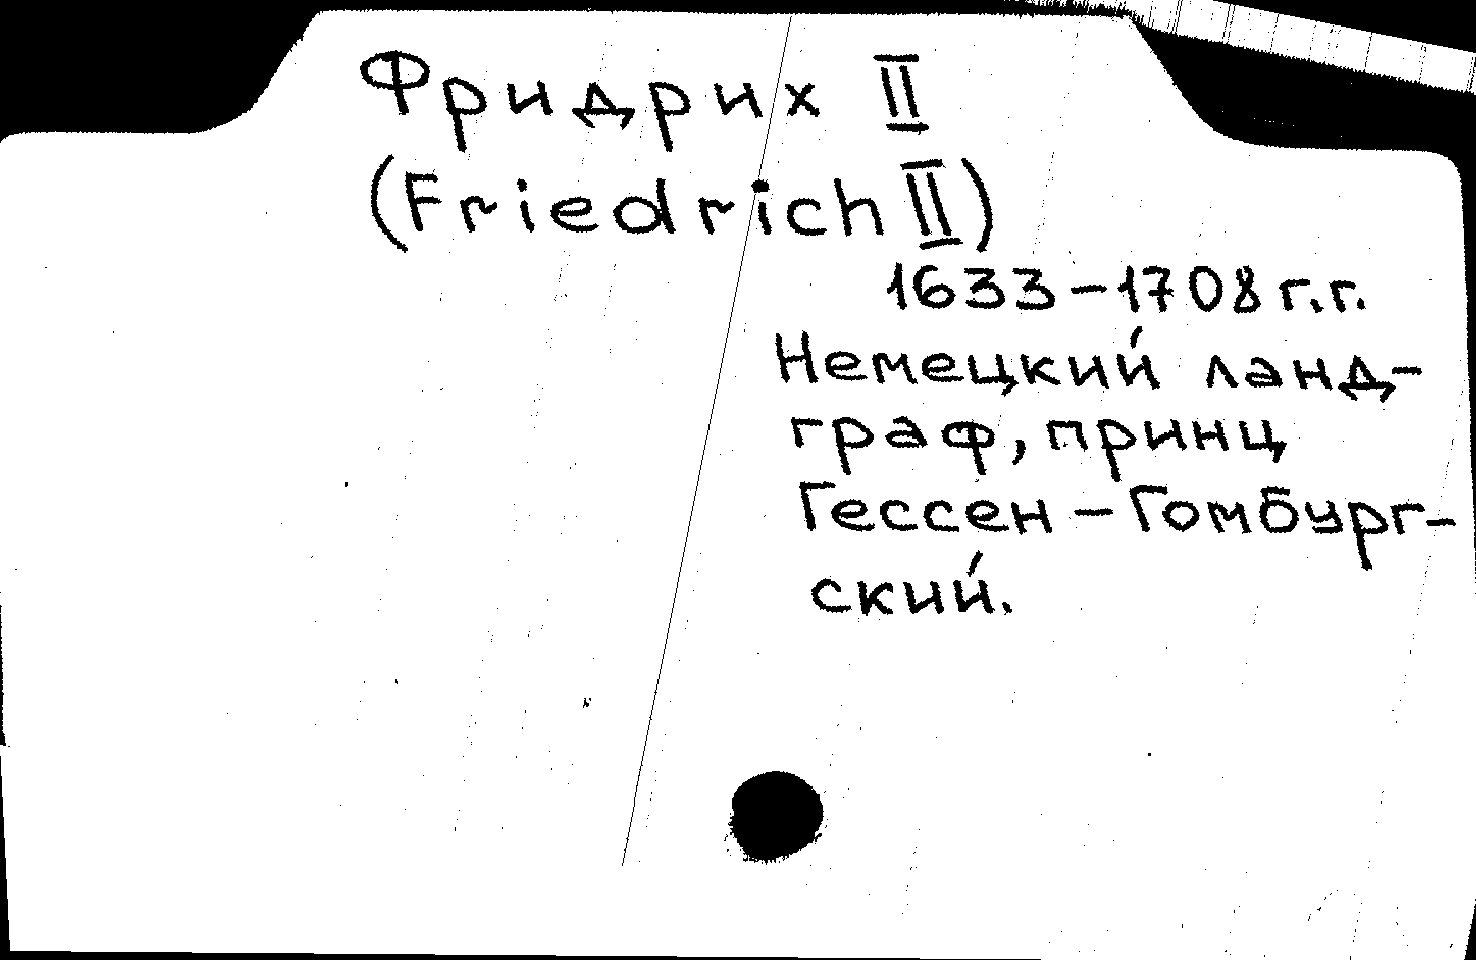 Фридрих II
(Friedrich II)
1633-1708 г.г.
Немецкий ланд-
граф, принц
Гессен-Гомбург-
ский.